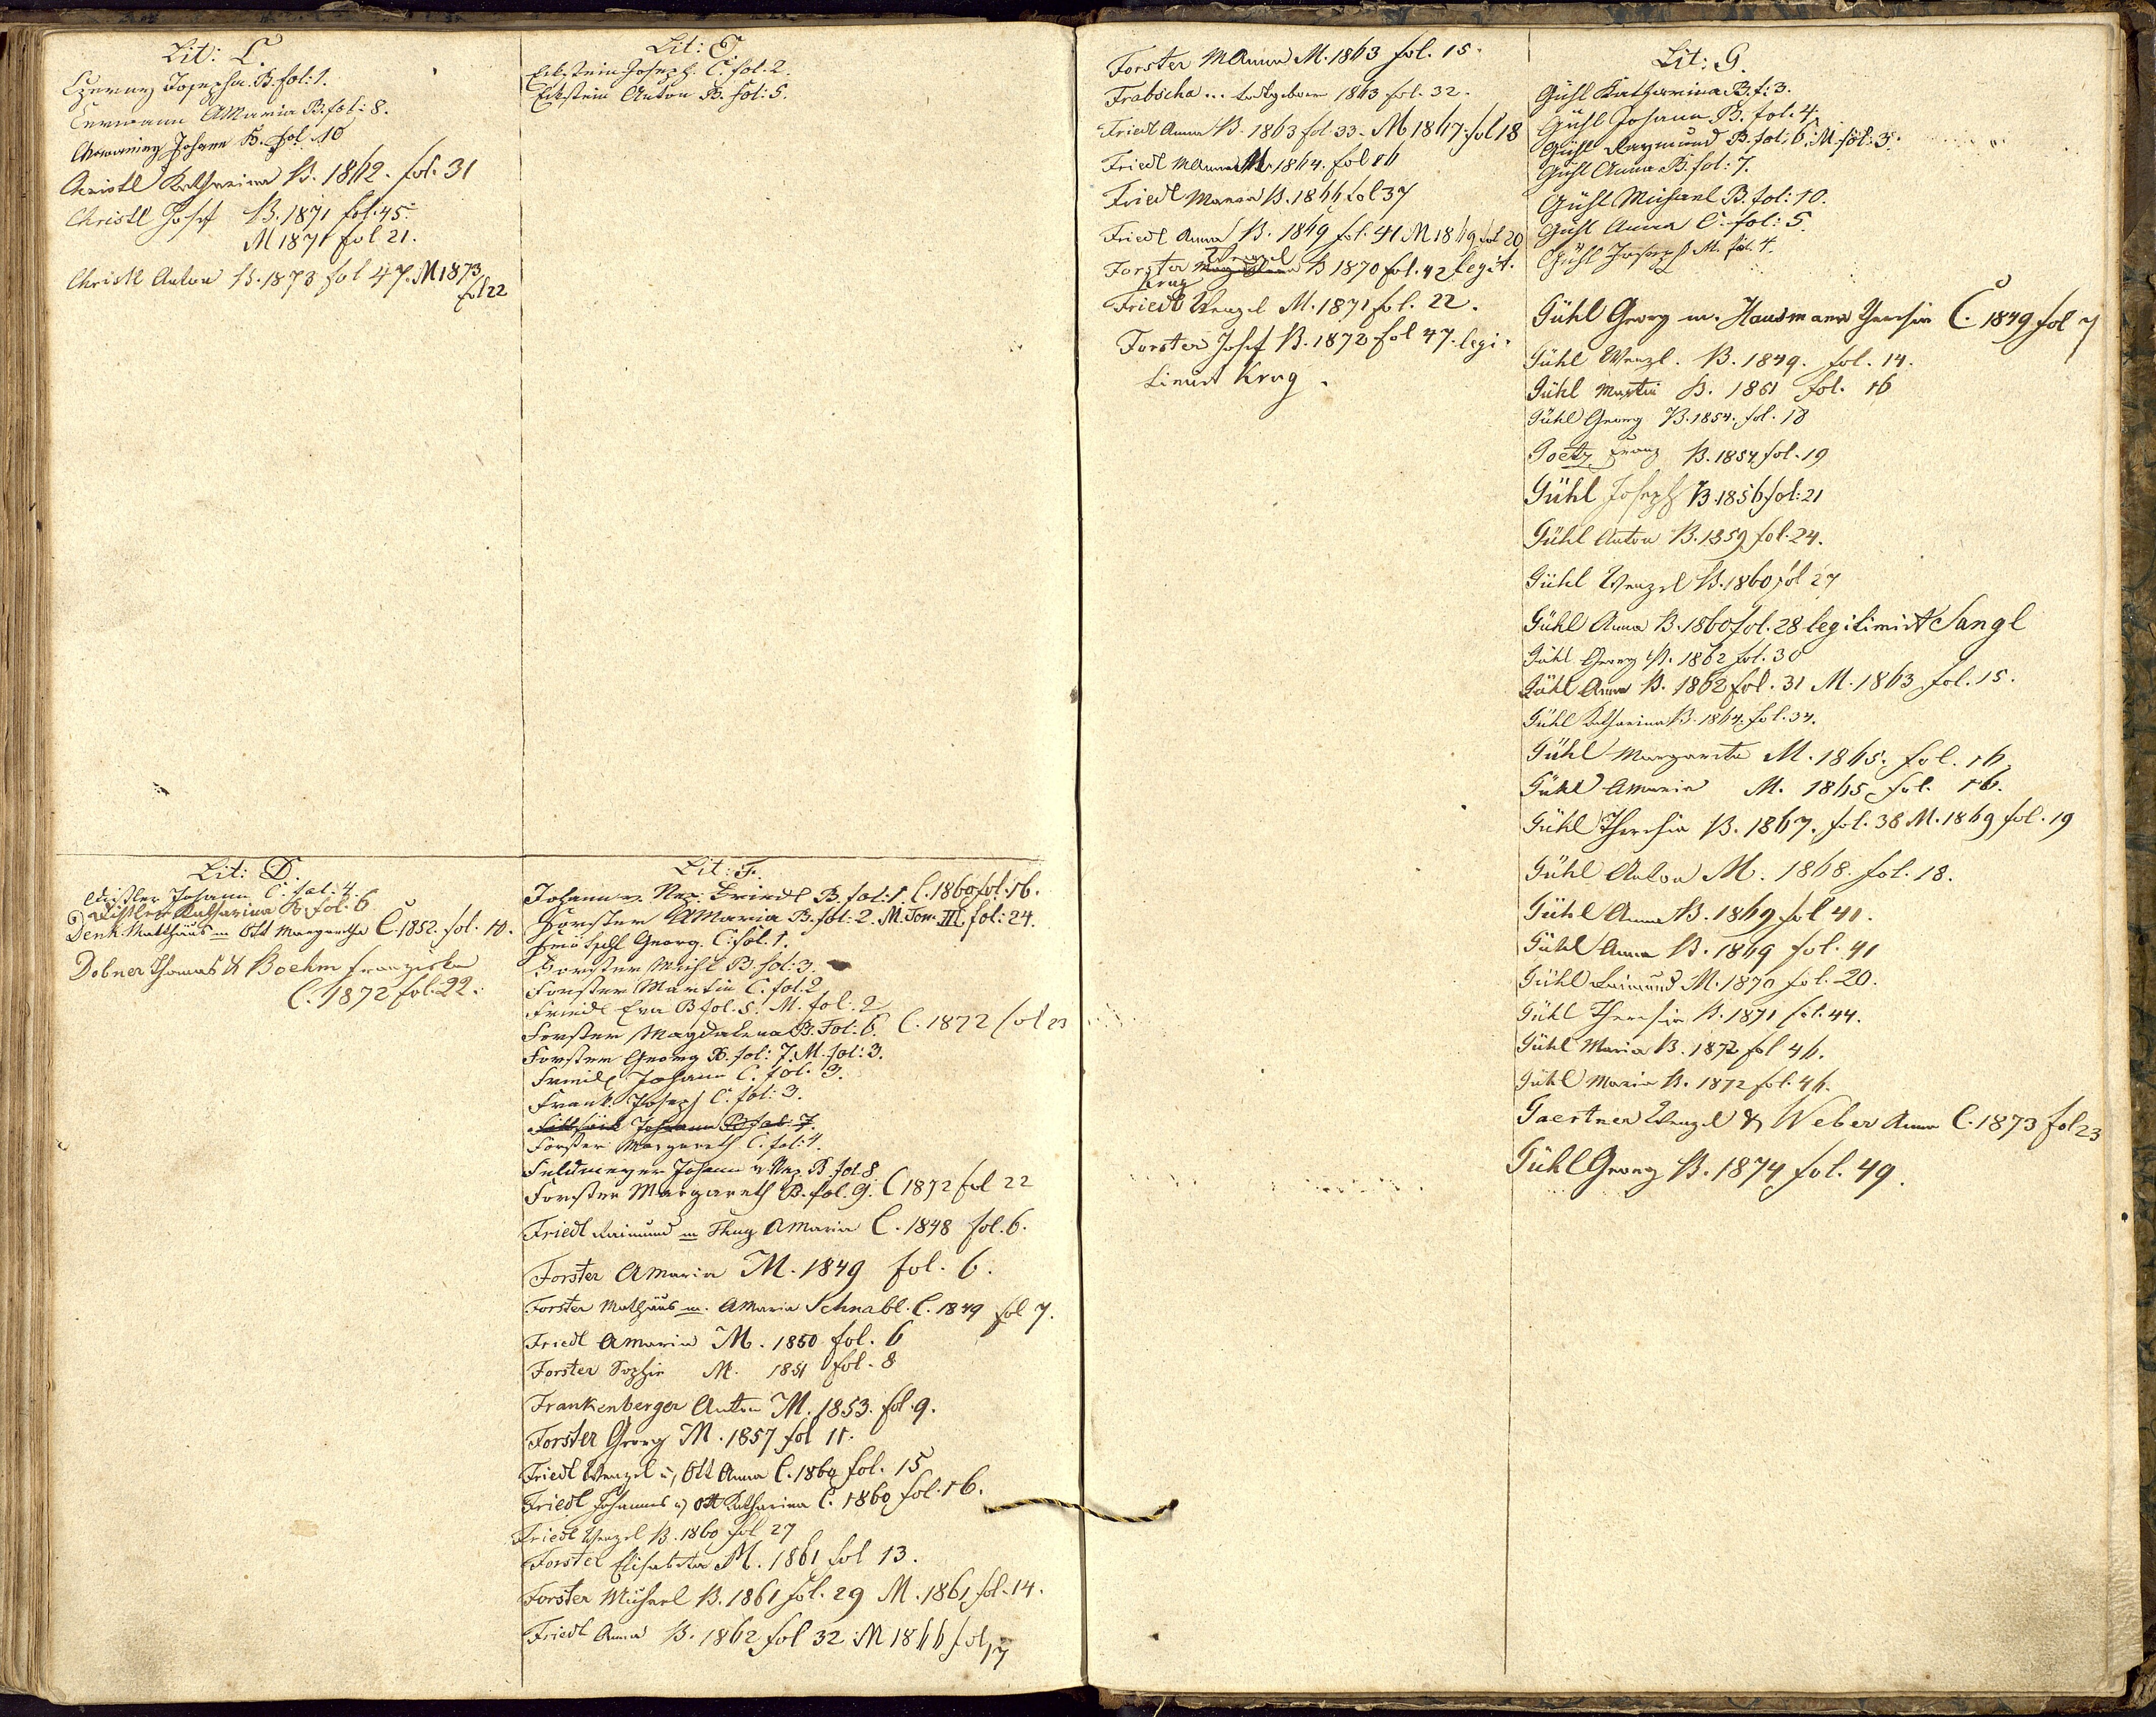 Lit: C.
Czerny Josepha B. fol: 1.
Cermann AMaria B. fol: 8.
Johann B. fol. 10
Christl Katharina B. 1862. fol. 31
Christl Josef B. 1871 fol. 45.
M 1871 fol 21.
Christl Anton B. 1873 fol 47. M 1873
fol 22
Lit: D.
Johann C. fol: 4.
Katharina B. fol: 6
Denk Matthäus m Ott Margaretha C. 1852. fol. 10.
Dobner Thomas & Boehm Franziska
C. 1872 fol. 22.
Lit: E.
Eckstein Joseph. C. fol. 2.
Eckstein Anton B. fol: 5.
Lit: F.
Johann v. Nep. Friedl B. fol: 1. C. 1860 fol. 16.
Forster AMaria B. fol: 2. M. Tom. III. fol: 24.
Georg. C. fol. 1.
Forster Michl B. fol: 3.
Forster Martin C. fol. 2
Friedl Eva B fol. 5. M. fol: 2
Forster Magdalena B. Fol: 6. C. 1872 fol 23
Forster Georg B. fol: 7. M. fol: 3.
Friedl Johann C. fol. 3.
Frank Joseph C. fol: 3.
Johann B fol. 7.
Forster Margareth C. fol: 4.
Feldmeyer Johann v Nep B fol. 8.
Forster Margareth B. fol. 9. C 1872 fol 22
Friedl Raimund m AMaria C. 1848 fol. 6.
Forster AMaria M. 1849 fol. 6.
Forster Mathäus m. AMaria Schnabl. C. 1849 fol 7.
Friedl AMaria M. 1850 fol. 6
Forster Sophie M. 1851 fol. 8
Frankenberger Anton M. 1853. fol. 9.
Forster Georg M. 1857 fol 11.
Friedl Wenzel u, Ott Anna C. 1860 fol. 15
Friedl Johannes u, Ott Katharina C. 1860 fol. 16.
Friedl Wenzel B. 1860 fol 27
Forster Elisabetha M. 1861 fol 13.
Forster Michael B. 1861 fol. 29 M. 1861 fol. 14.
Friedl Anna B. 1862 fol 32 M 1866 fol 17
Forster MAnna M. 1863 fol. 15.
Frabscha ... todtgeboren 1863 fol. 32.
Friedl Anna B. 1863 fol 33. M 1867. fol 18
Friedl MAnna M. 1864. fol 16
Friedl Maria B. 1866 fol 37
Friedl Anna B. 1869 fol. 41 M 1869 fol 20
Wenzel
Forster B 1870 fol. 42 legit.
Krug
Friedl Wenzel M. 1871 fol. 22.
Forster Josef B. 1872 fol 47. legi-
timirt Krug.
Lit: G.
Gühl Katharina B. f: 3.
Gühl Johann B. fol. 4.
Gühl Raymund B. fol: 6. M. fol: 3.
Gühl Anna B. fol: 7.
Gühl Michael B. fol: 10.
Gühl Anna C. fol: 5.
Gühl Joseph M. fol. 4.
Gühl Georg m. Hausmann Theresia C. 1849 fol 7
Gühl Wenzl. B. 1849. fol. 14.
Gühl Martin B. 1851 fol. 16
Gühl Georg B. 1854. fol. 18
Goetz Franz B. 1854 fol. 19
Gühl Joseph B. 1856 fol: 21
Gühl Anton B. 1859 fol. 24.
Gühl Wenzel B. 1860 fol 27
Gühl Anna B. 1860 fol. 28 legitimirt Sangl
Gühl Georg B. 1862 fol. 30
Gühl Anna B. 1862 fol. 31 M. 1863 fol. 15.
Gühl Katharina B. 1864. fol. 34.
Gühl Margaretha M. 1865. fol. 16.
Gühl AMaria M. 1865 fol. 16.
Gühl Theresia B. 1867. fol. 38 M. 1869 fol. 19
Gühl Anton M. 1868. fol. 18.
Gühl Anna B. 1869 fol 40.
Gühl Anna B. 1869 fol. 41
Gühl Raimund M. 1870 fol. 20.
Gühl Theresia B. 1871 fol. 44.
Gühl Maria B. 1872 fol 46.
Gühl Maria B. 1872 fol. 46.
Gaertner Wenzel & Weber Anna C. 1873 fol 23
Gühl Georg B. 1874 fol. 49.